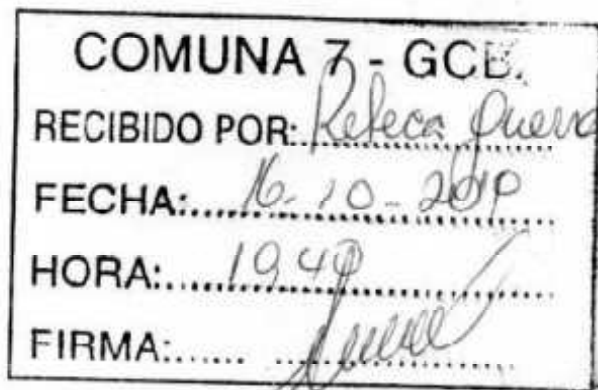 COMUNA 7 - GCB.
RECIBIDO POR: Rebeca
FECHA: 16-10-2019
HORA: 19:40
FIRMA: